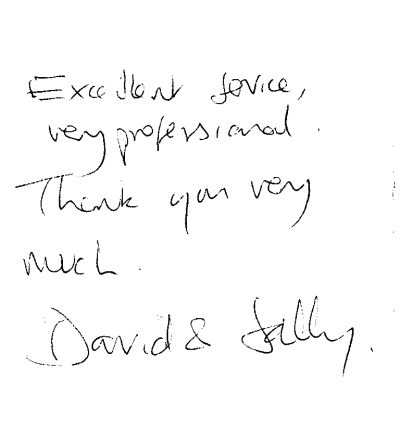 Excellent service,
very professional.
Thank you very
much.
David & Sally.